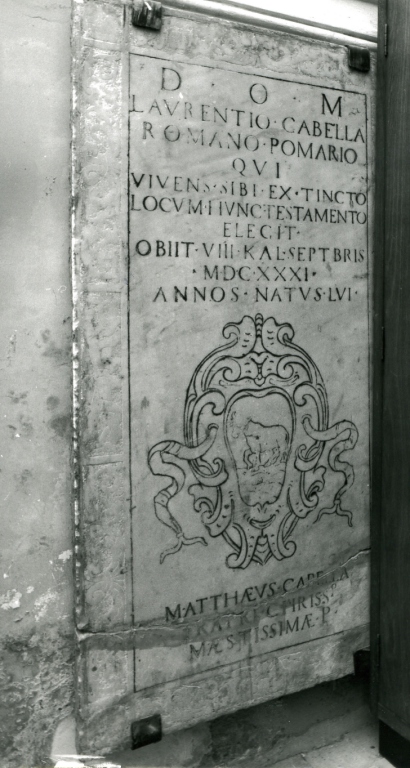 D · O · M
LAVRENTIO · CABELLA
ROMANO · POMARIO
QVI
VIVENS · SIBI · EX · TINCTO
LOCVM · HVNC TESTAMENTO
ELEGIT ·
OBIIT · VIII · KAL · SEPTBRIS
· MDCXXXI ·
ANNOS · NATVS · LVI ·
MATTHÆVS CABELLA
MÆSTISSIMÆ · P ·